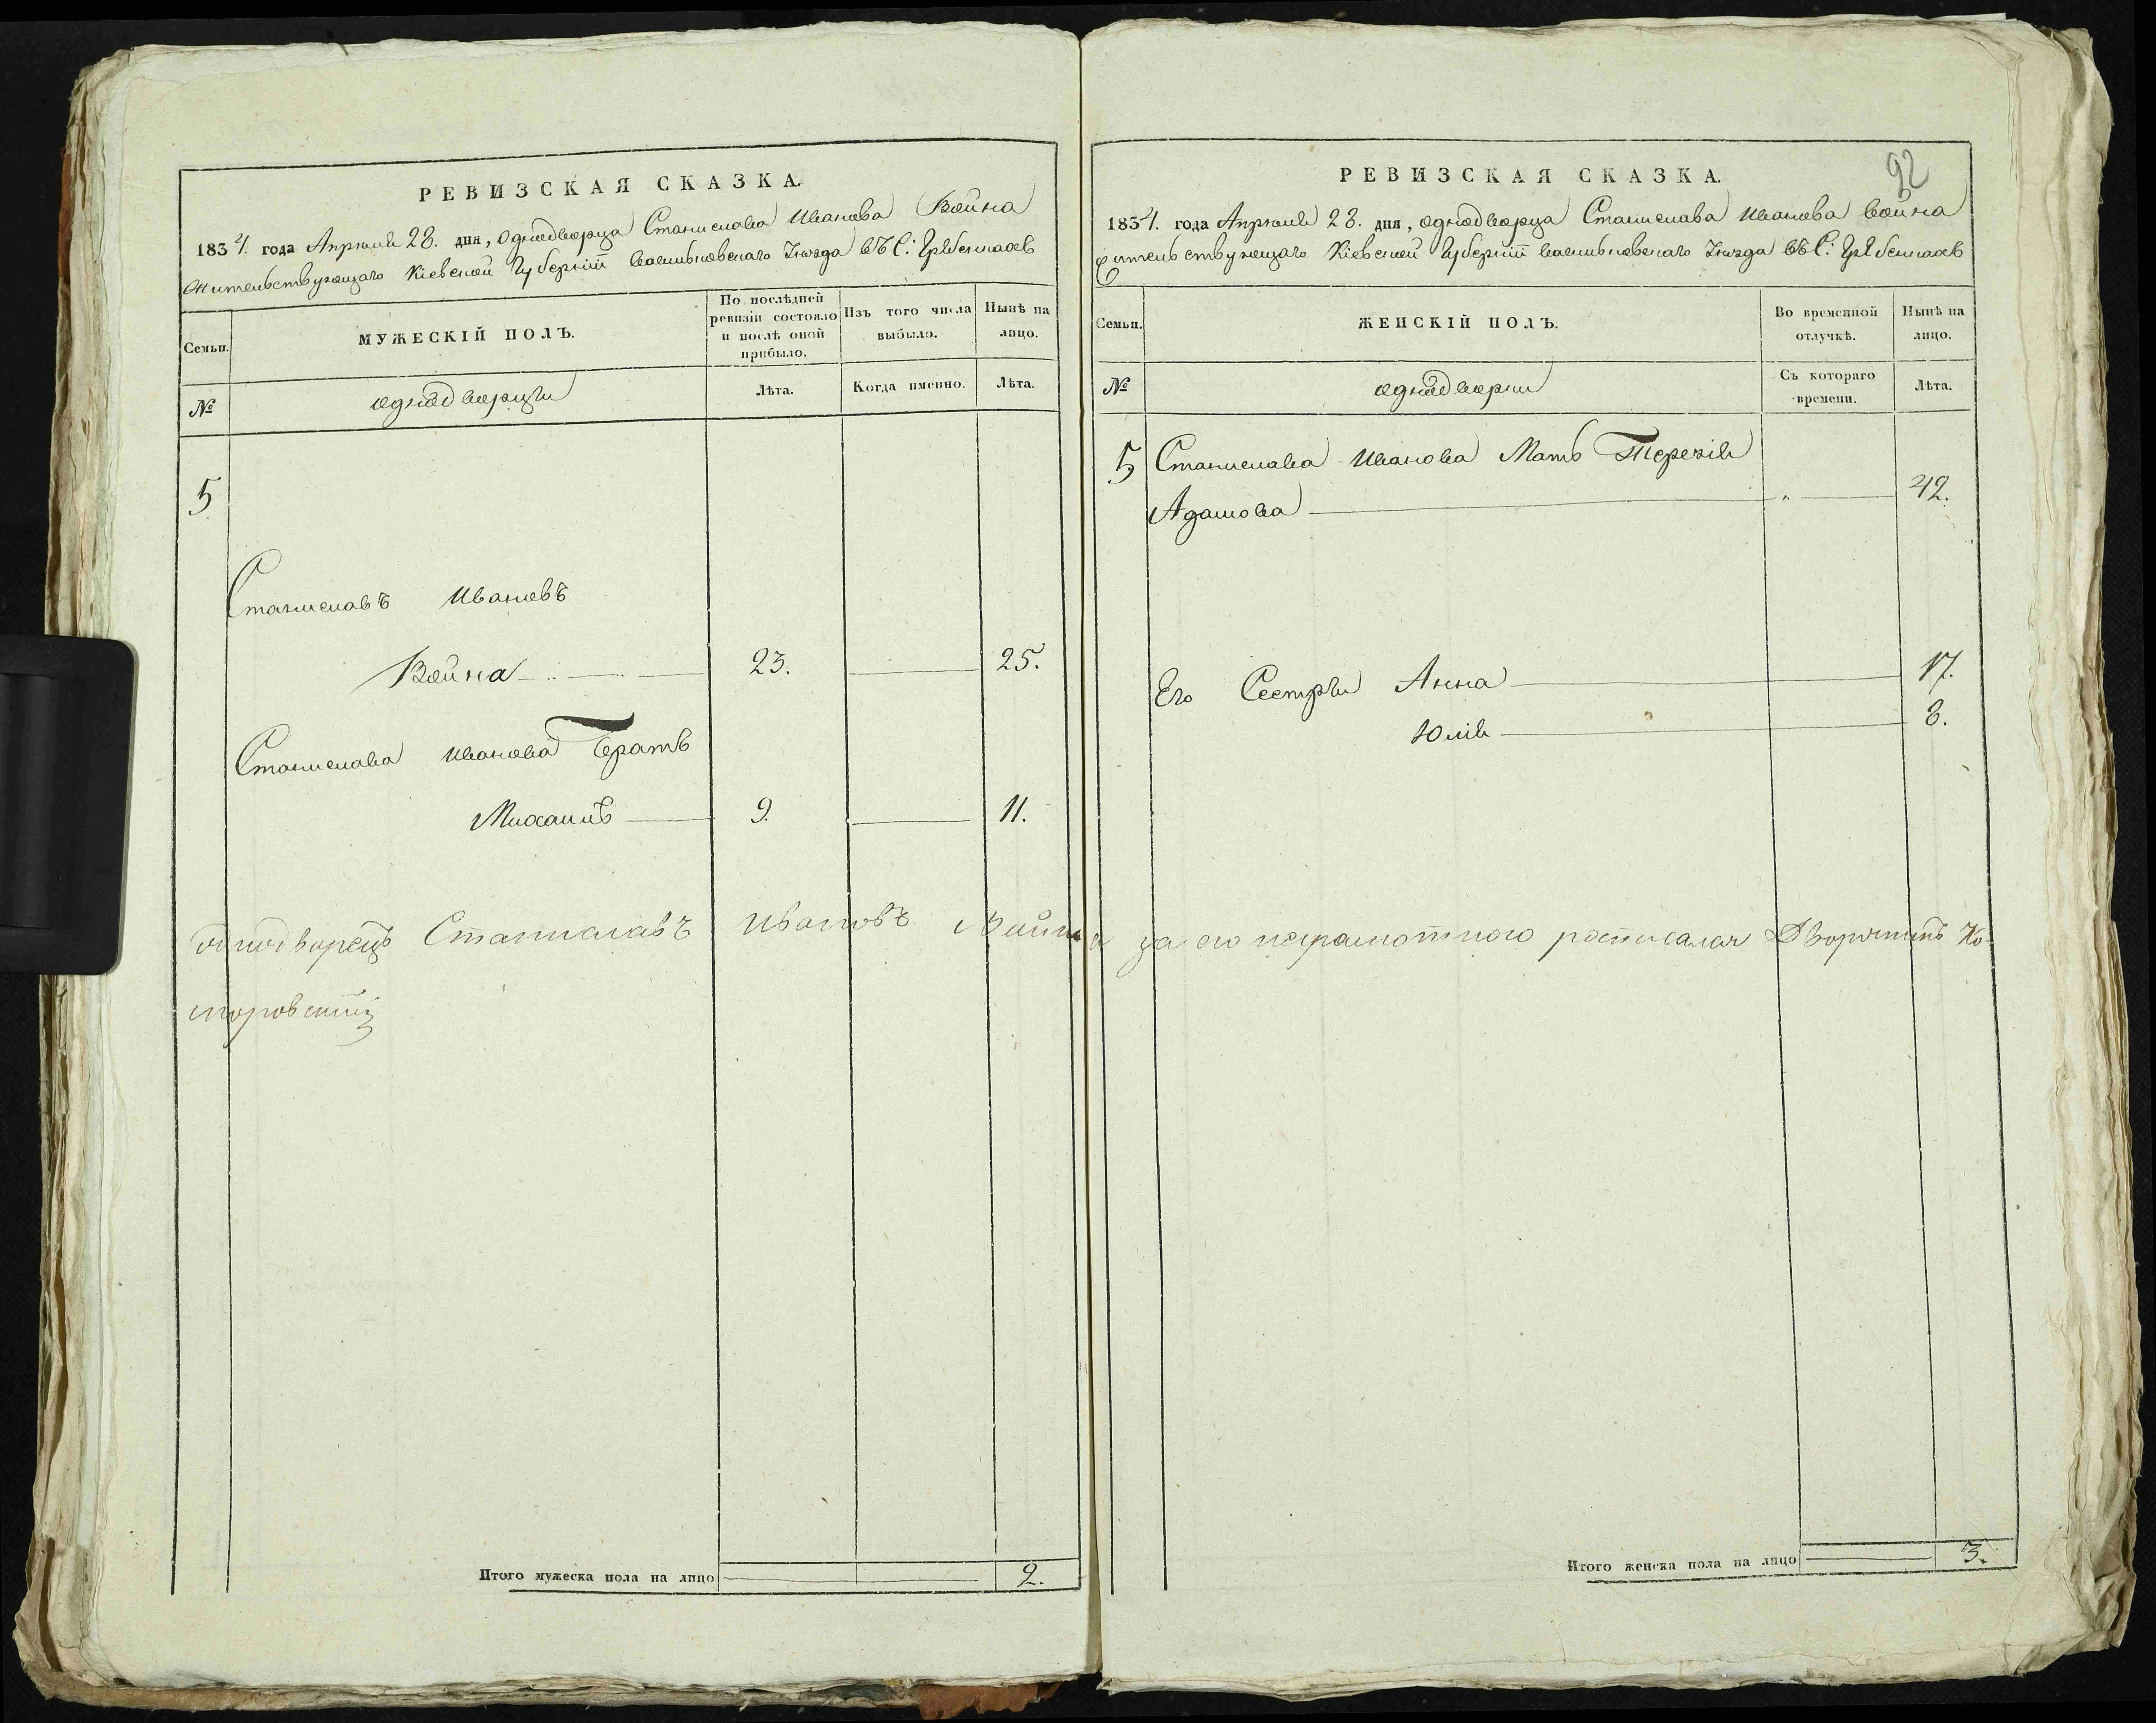 РЕВИЗСКАЯ СКАЗКА.
1834. года Апреля 28. дня, однодворца Станислава Иванова Война
жительствующаго Кіевской Губерніи Васильковскаго Уезда въ С: Гребенкахъ
Семьи.
МУЖЕСКІЙ ПОЛЪ.
По послѣдней ревизіи состояло и послѣ оной прибыло.
Изъ того числа выбыло.
Нынѣ на лицо.
№
однодворцы
Лѣта.
Когда именно.
Лѣта.
5
Станиславъ Ивановъ
Война 23. 25.
Станислава Иванова братъ
Михаилъ 9. 11.
Итого мужеска пола на лицо 2.
92
РЕВИЗСКАЯ СКАЗКА.
1834. года Апреля 28. дня, однодворца Станислава Иванова Война
жительствующаго Кіевской Губерніи Васильковскаго Уезда въ С: Гребенкахъ
Семьи.
ЖЕНСКІЙ ПОЛЪ.
Во временной отлучкѣ.
Нынѣ на лицо.
№
однодворки
Съ котораго времени.
Лѣта.
5 Станислава Иванова Мать Терезія
Адамова " 42.
Его Сестры Анна 17.
Юлія 8.
Однодворецъ Станиславъ Ивановъ Война а за его неграмотного росписался Дворянинъ
Итого женска пола на лицо 3.